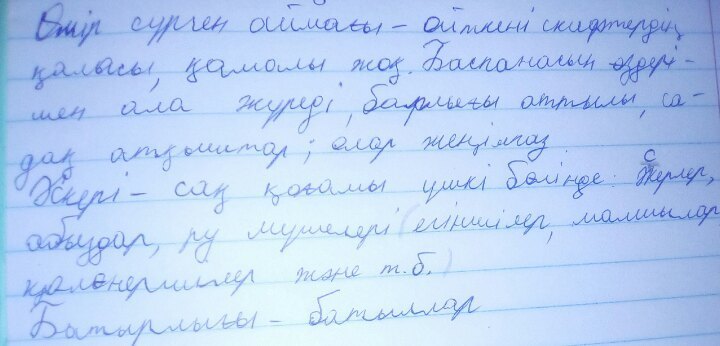 Өмір сүрген аймағы – өйткені скифтердің
қаласы, қамалы жоқ. Баспанасын өздері-
мен ала жүреді, барлығы аттылы, са-
дақ атқыштар; олар жеңілмаз.
Әскері – сақ қоғамы үшкі бөлінде: Жерлер,
абыздар, ру мүшелері (егіншілер, малшылар
қолөнершілер және т.б.)
Батырлығы – батыллар